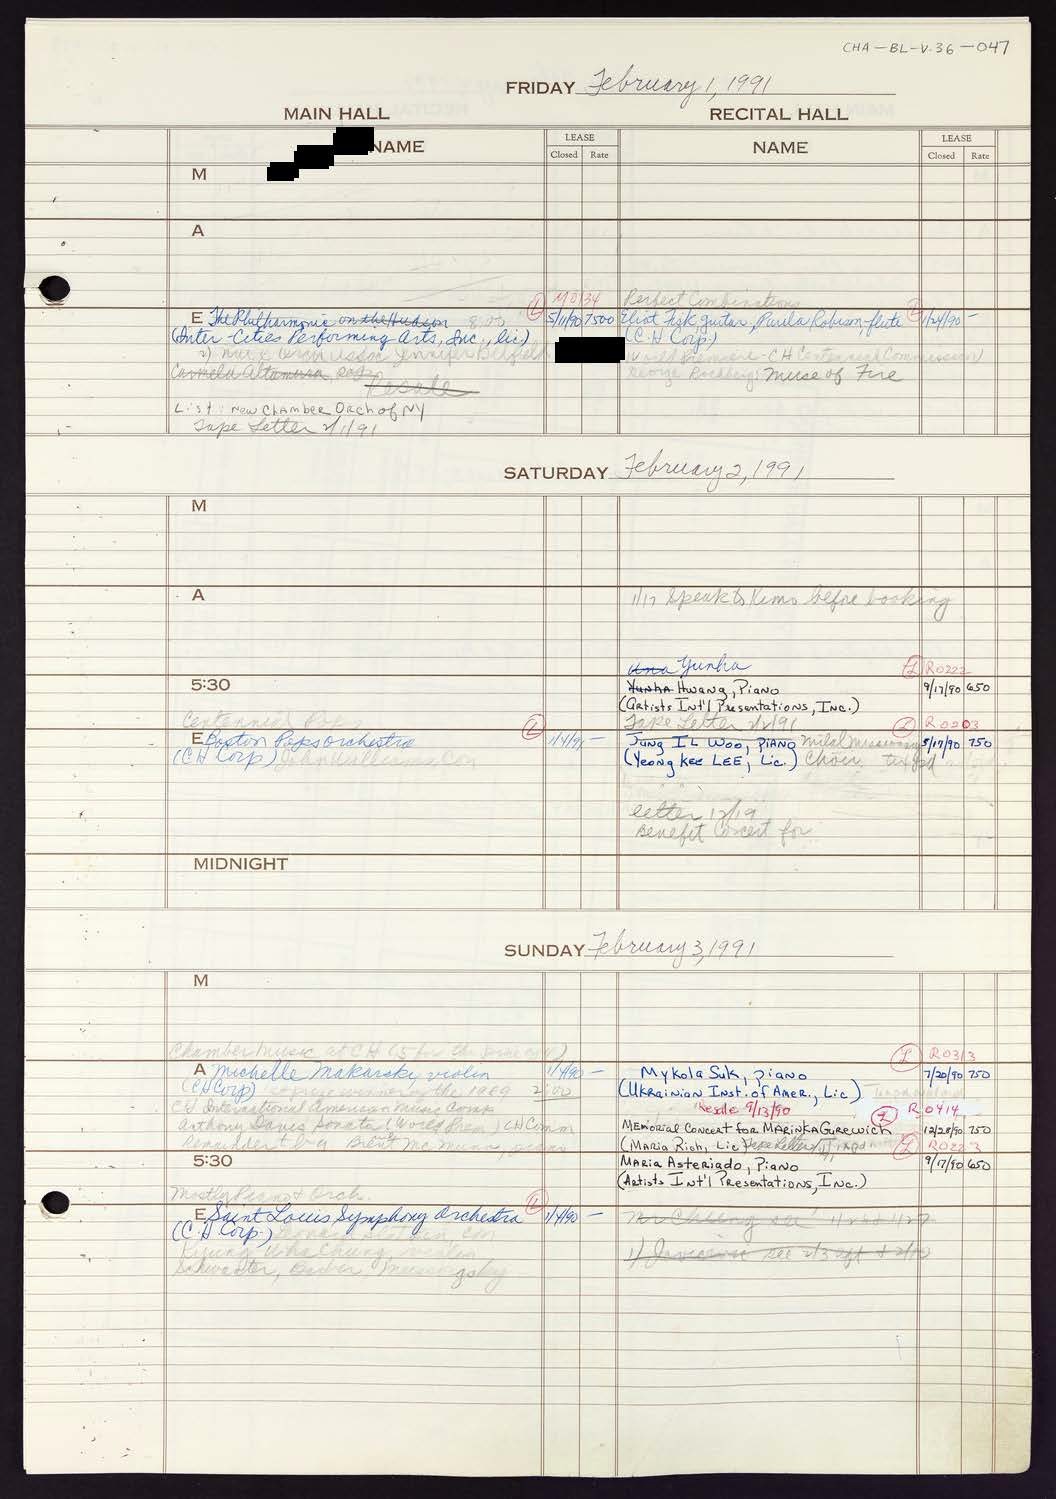 CHA-BL-V.36-047
FRIDAY February 1, 1991
MAIN HALL
RECITAL HALL
NAME
LEASE
Closed Rate
NAME
LEASE
Closed Rate
M
A
L M0134
Perfect Combinations
E The Philharmonic on the Hudson 8:00 5/11/90 7500
Eliot Fisk, guitar, Paula Robison-flute L 1/24/90 -
(Inter-Cities Performing Arts, Inc., Lic)
(C.H. Corp.)
World Premiere - CH Centennial Commission
Carmela Altamura, sop
George Rochberg: Muse of Fire
Resale
List: New Chamber Orch of NY
Tape Letter 2/1/91
SATURDAY February 2, 1991
M
A
1/17 Speak to Kimo before booking
Una Yunha
L R0222
5:30
Yunha Hwang, Piano 9/17/90 650
(Artists Int'l Presentations, Inc.)
Centennial Pops
Tape Letter 2/2/91
L R0203
E Boston Pops Orchestra L 1/4/91 -
Jung IL Woo, Piano 5/17/90 750
(CH Corp) John Williams Con
(Yeong Kee LEE, Lic.) Choir
letter 12/19
Benefit Concert for
MIDNIGHT
SUNDAY February 3, 1991
M
Chamber Music at CH (5 for the price of 4)
L R0313
A Michelle Makarski, violin 1/4/90 -
Mykola Suk, piano 7/20/90 750
(CH Corp) winner of the 1989 2:00
(Ukrainian Inst. of Amer., Lic)
CH International American Music Comp
Resale 9/13/90
L R0414
Anthony Davis Sonata (World Prem) CH Comm
Memorial Concert for Marinka Gurewich 12/28/90 750
Brent McMunn, piano
(Maria Rich, Lic) Tape Letter
L R0223
5:30
Maria Asteriado, Piano 9/17/90 650
(Artists Int'l Presentations, Inc.)
Mostly Piano & Orch.
E Saint Louis Symphony Orchestra L 1/4/90 -
(C.H. Corp.) Leonard Slatkin, con
Kyung Wha Chung, violin
Schwantner, Barber, Mussorgsky